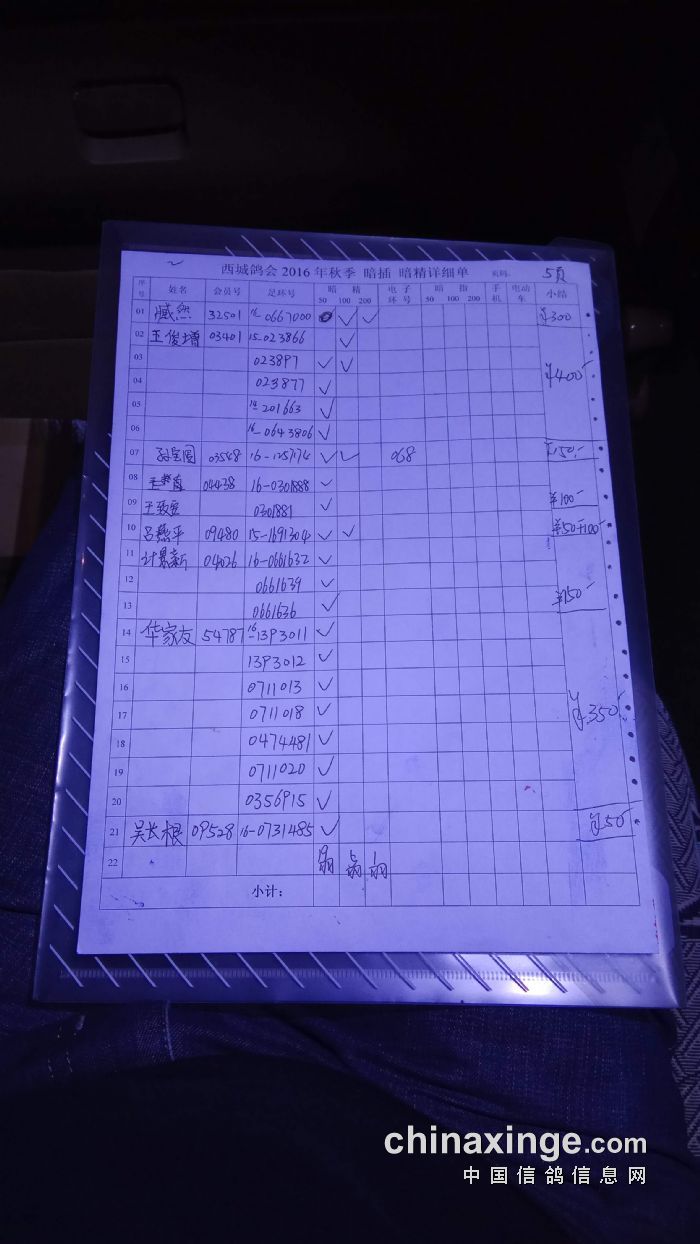 西城鸽会 2016 年秋季 暗插 暗精详细单 页码: 5页
序号 姓名 会员号 足环号 暗 精 电子环号 暗 指 手机 电动车 小结
50 100 200 50 100 200
01 臧烈 32501 16-0667000 ✓ ✓ ¥300
02 王俊增 03401 15-023866 ✓
03 023897 ✓ ✓
04 023877 ✓ ¥400-
05 14-201663 ✓
06 16-0643806 ✓
07 03548 16-1257174 ✓ ✓ 068 ¥150-
08 04438 16-0301888 ✓
09 0301881 ✓ ¥100-
10 吕燕平 09480 15-1691304 ✓ ✓ ¥50+100-
11 04026 16-0661632 ✓
12 0661639 ✓
13 0661636 ✓ ¥150-
14 华家友 54787 16-1393011 ✓
15 1393012 ✓
16 0711013 ✓
17 0711018 ✓ ¥350-
18 0474481 ✓
19 0711020 ✓
20 0356915 ✓
21 吴长根 09528 16-0731485 ✓ ¥50-
22
小计:
chinaxinge.com
中国信鸽信息网